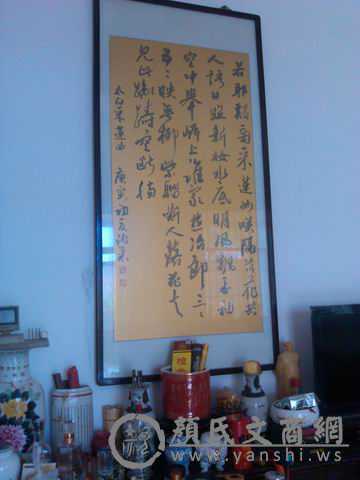 若耶谿旁采蓮女咲隔荷花共
人語日照新妝水底明風飄香袖
空中舉岸上誰家遊冶郎三三
五五映垂楊紫騮嘶入落花去
見此踟躕空斷腸
太白采蓮曲 庚寅初夏
顏氏文商網
www.yanshi.ws